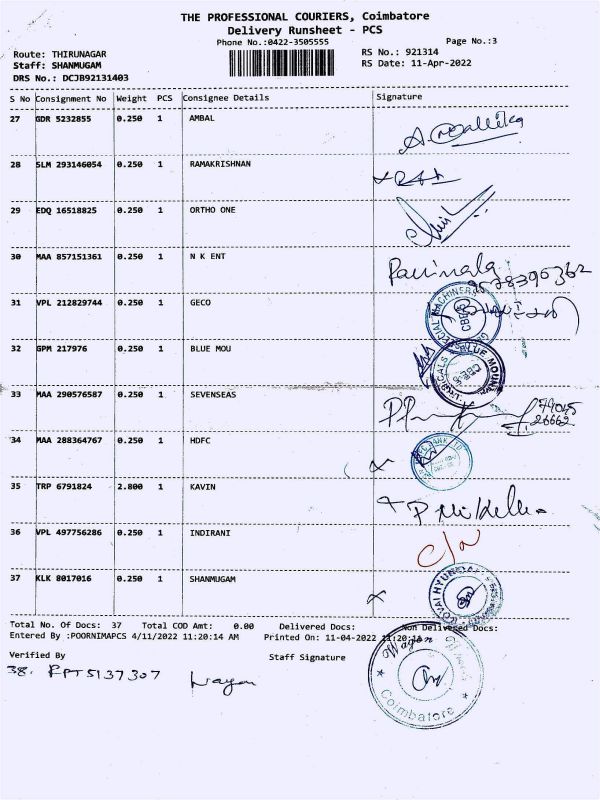 THE PROFESSIONAL COURIERS, Coimbatore
Delivery Runsheet - PCS
Phone No.:0422-3505555 Page No.:3
Route: THIRUNAGAR RS No.: 921314
Staff: SHANMUGAM RS Date: 11-Apr-2022
DRS No.: DCJB92131403
S No Consignment No Weight PCS Consignee Details Signature
27 GDR 5232855 0.250 1 AMBAL
28 SLM 293146054 0.250 1 RAMAKRISHNAN
29 EDQ 16518825 0.250 1 ORTHO ONE
30 MAA 857151361 0.250 1 N K ENT
9578395362
31 VPL 212829744 0.250 1 GECO
32 GPM 217976 0.250 1 BLUE MOU
BLUE MOUN
33 MAA 290576587 0.250 1 SEVENSEAS
26662
34 MAA 288364767 0.250 1 HDFC
35 TRP 6791824 2.800 1 KAVIN
36 VPL 497756286 0.250 1 INDIRANI
37 KLK 8017016 0.250 1 SHANMUGAM
Total No. Of Docs: 37 Total COD Amt: 0.00 Delivered Docs: Non Delivered Docs:
Entered By :POORNIMAPCS 4/11/2022 11:20:14 AM Printed On: 11-04-2022 11:20:18
Verified By Staff Signature
38. RPT5137307 Wagon
Wagon Wheels
Coimbatore